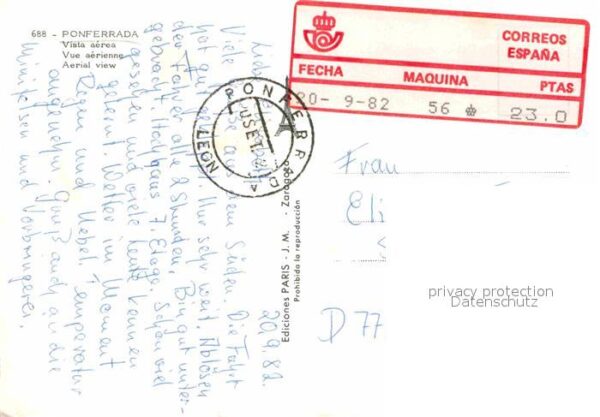 688 - PONFERRADA
Vista aérea
Vue aérienne
Aerial view
CORREOS
ESPAÑA
FECHA MAQUINA PTAS
20- 9-82 56 23.0
PONFERRADA
LEON
20.9.82.
Viele aus dem Süden. Die Fahrt
hat gut Nur sehr weit. Ablösen
der Fahrer alle 2 Stunden. Bin gut unter-
gebracht. Hochhaus 7. Etage. Schon viel
gesehen und viele Leute kennen
gelernt. Wetter im Moment
Regen und Nebel. Temperatur
angenehm. Gruß auch an die
und
Ediciones PARIS - J. M. - Zaragoza
Prohibida la reproducción
Frau
Eli
D 77
privacy protection
Datenschutz